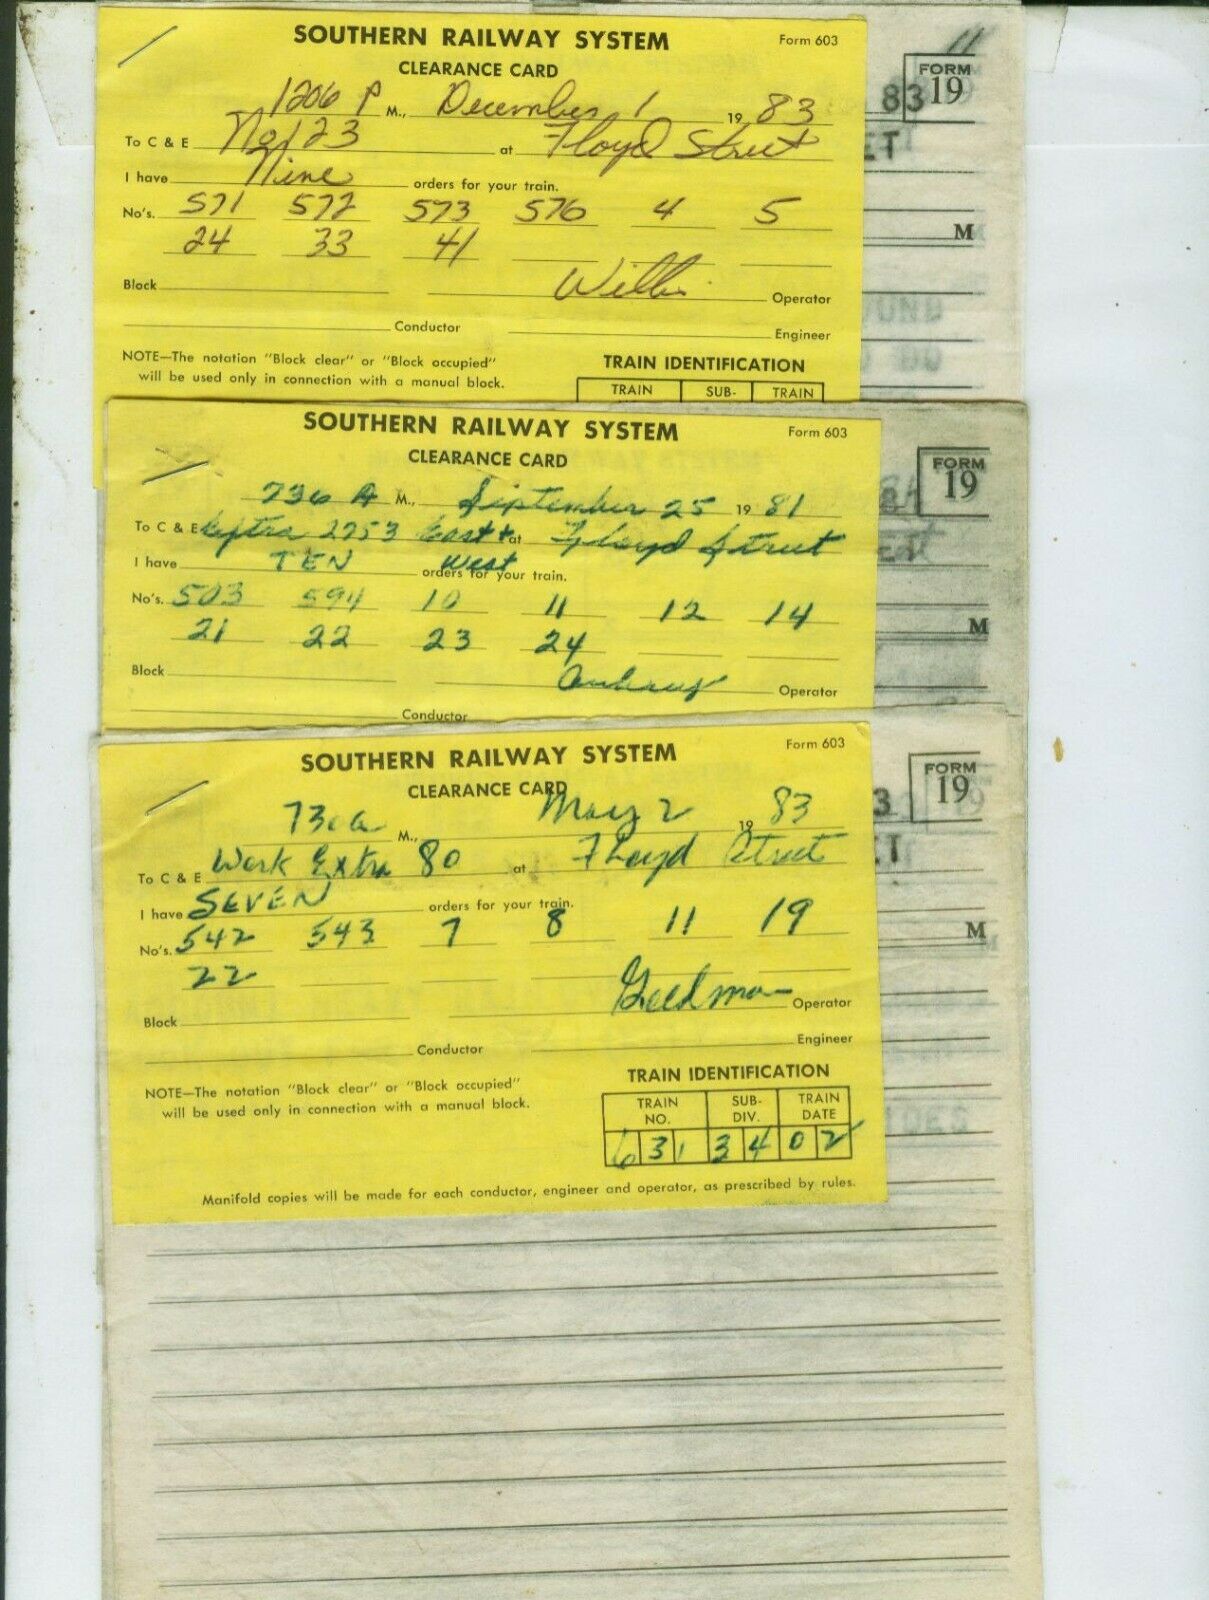 SOUTHERN RAILWAY SYSTEM Form 603
CLEARANCE CARD
1206 P M., December 1 19 83
To C & E No 123 at Floyd Street
I have Nine orders for your train.
No's. 571 572 573 576 4 5
24 33 41
Block Operator
Conductor Engineer
NOTE—The notation "Block clear" or "Block occupied"
will be used only in connection with a manual block.
TRAIN IDENTIFICATION
TRAIN SUB- TRAIN
FORM
19
83
ET
M
SOUTHERN RAILWAY SYSTEM Form 603
CLEARANCE CARD
736 A M., September 25 19 81
To C & E Extra 2753 East + at Floyd Street
West
I have TEN orders for your train.
No's. 503 594 10 11 12 14
21 22 23 24
Block Operator
Conductor
FORM
19
M
SOUTHERN RAILWAY SYSTEM Form 603
CLEARANCE CARD
730a M., May 2 19 83
To C & E Work Extra 80 at Floyd Street
I have SEVEN orders for your train.
No's. 542 543 7 8 11 19
22
Block Operator
Conductor Engineer
NOTE—The notation "Block clear" or "Block occupied"
will be used only in connection with a manual block.
TRAIN IDENTIFICATION
TRAIN NO. SUB-DIV. TRAIN DATE
6 3 1 3 4 0 2
Manifold copies will be made for each conductor, engineer and operator, as prescribed by rules.
FORM
19
3
M